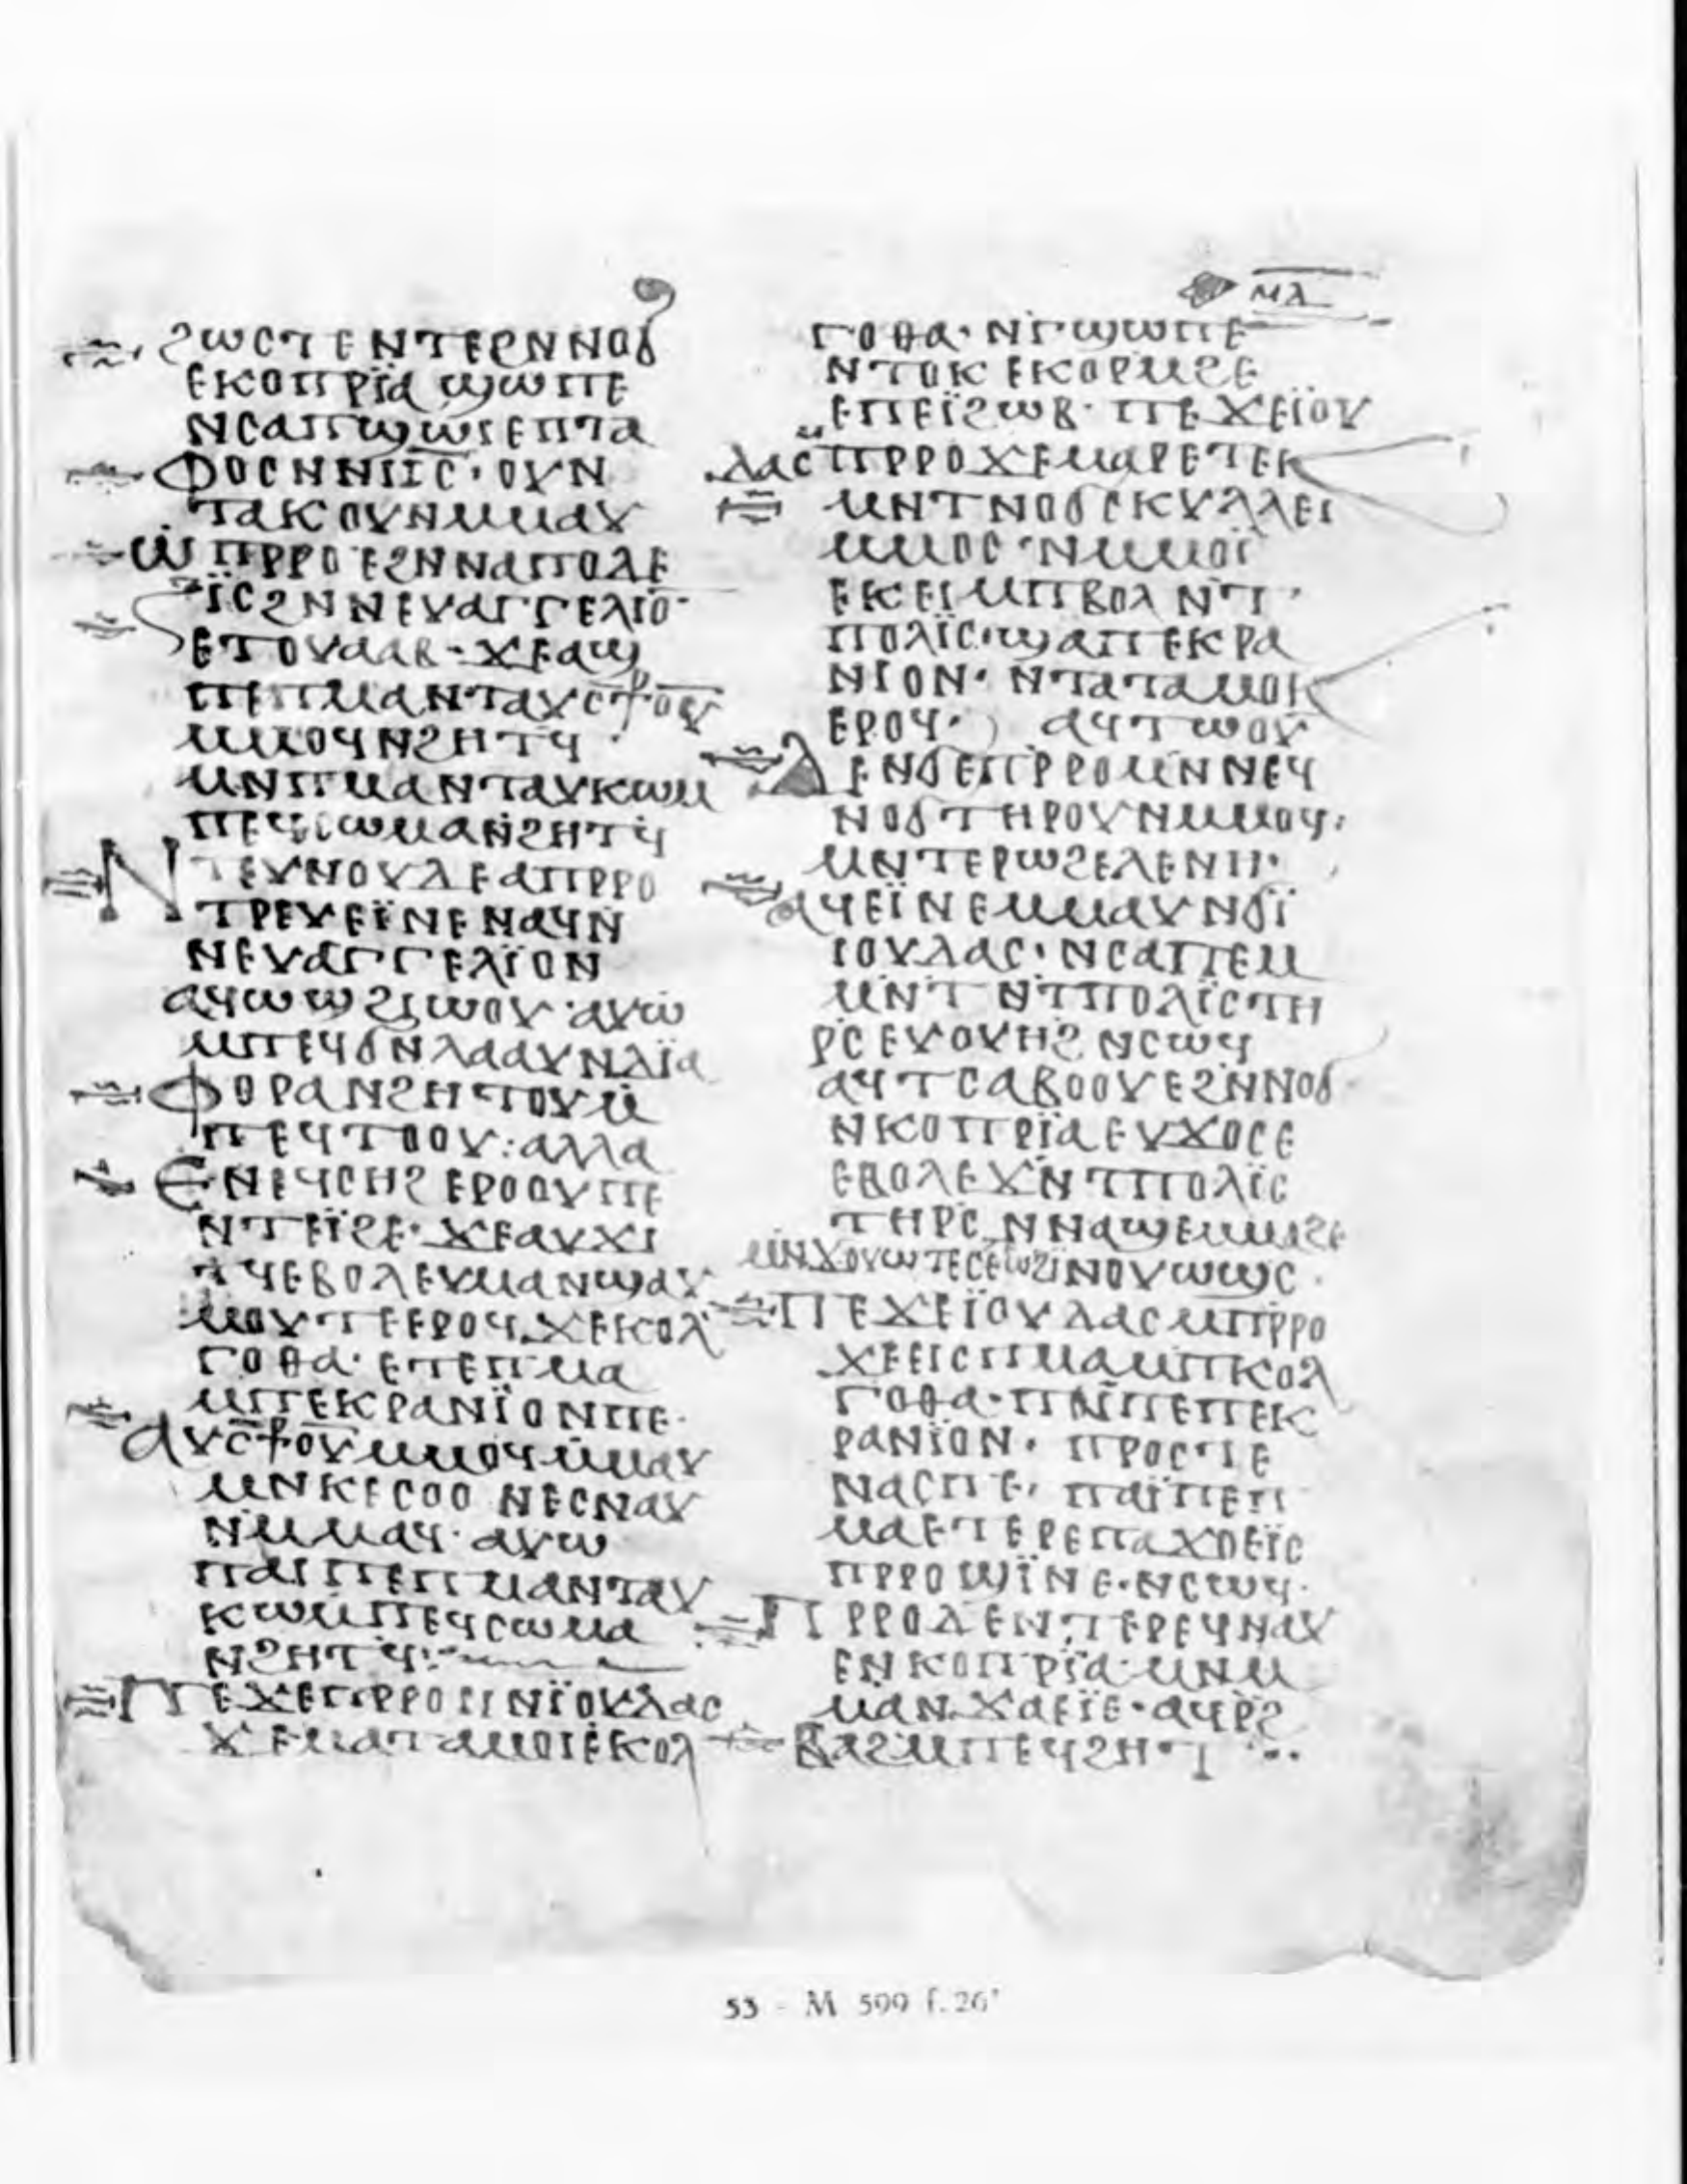 ⲙⲁ
ϩⲱⲥⲧⲉⲛⲧⲉⲣⲛⲛⲟϭ
ⲉⲕⲟⲡⲣⲓ̈ⲁ ϣⲱⲡⲉ
ⲛⲥⲁⲡϣⲱⲓⲉⲡⲧⲁ
ⲫⲟⲥⲛⲛⲓ̅ⲥ̅· ⲟⲩⲛ
ⲧⲁⲕⲟⲩⲛⲙⲙⲁⲩ
ⲱ ⲡⲣⲣⲟ ⲉϩⲛⲛⲁⲡⲟⲗⲉ
ⲓ̈ⲥϩⲛⲛⲉⲩⲁⲅⲅⲉⲗⲓⲟ̅
ⲉⲧⲟⲩⲁⲁⲃ· ϫⲉⲁϣ
ⲡⲉⲡⲙⲁⲛⲧⲁⲩⲥ̅⳨̅ⲟⲩ
ⲙⲙⲟϥⲛϩⲏⲧϥ·
ⲙⲛⲡⲙⲁⲛⲧⲁⲩⲕⲱⲙ
ⲡⲉϥⲥⲱⲙⲁⲛϩⲏⲧϥ
ⲛⲧⲉⲩⲛⲟⲩⲇⲉⲁⲡⲣⲣⲟ
ⲧⲣⲉⲩⲉⲓ̈ⲛⲉ ⲛⲁϥⲛ
ⲛⲉⲩⲁⲅⲅⲉⲗⲓ̈ⲟⲛ
ⲁϥⲱϣϩⲓⲱⲟⲩ· ⲁⲩⲱ
ⲙⲡⲉϥϭⲛⲗⲁⲁⲩⲛⲇⲓ̈ⲁ
ⲫⲟⲣⲁⲛϩⲏⲧⲟⲩⲙ̇
ⲡⲉϥⲧⲟⲟⲩ: ⲁⲗⲗⲁ
ⲉⲛⲉϥⲥⲏϩ ⲉⲣⲟⲟⲩⲡⲉ
ⲛⲧⲉⲓ̈ϩⲉ· ϫⲉⲁⲩϫⲓ
ⲧϥⲉⲃⲟⲗⲉⲩⲙⲁⲛϣⲁⲩ
ⲙⲟⲩⲧⲉⲉⲣⲟϥ ϫⲉⲕⲟⲗ
ⲅⲟⲑⲁ· ⲉⲧⲉⲡⲙⲁ
ⲙⲡⲉⲕⲣⲁⲛⲓ̈ⲟⲛⲡⲉ·
ⲁⲩⲥ̅⳨̅ⲟⲩⲙⲙⲟϥⲙⲙⲁⲩ
ⲙⲛⲕⲉⲥⲟⲟ ⲛⲉⲥⲛⲁⲩ
ⲛⲙⲙⲁϥ· ⲁⲩⲱ
ⲡⲁⲓⲡⲉⲡⲙⲁⲛⲧⲁⲩ
ⲕⲱⲙⲡⲉϥⲥⲱⲙⲁ
ⲛϩⲏⲧϥ:
ⲡⲉϫⲉⲡⲣⲣⲟⲛⲓ̈ⲟⲩⲇⲁⲥ
ϫⲉⲙⲁⲧⲁⲙⲟⲓⲉⲕⲟⲗ
ⲅⲟⲑⲁ· ⲛⲅϣⲱⲡⲉ
ⲛⲧⲟⲕ ⲉⲕⲟⲣⲙϩⲉ
ⲉⲡⲉⲓ̈ϩⲱⲃ· ⲡⲉϫⲉⲓ̈ⲟⲩ
ⲇⲁⲥ ⲡⲣⲣⲟϫⲉⲙⲁⲣⲉⲧⲉⲕ
ⲙⲛⲧⲛⲟϭⲥⲕⲩⲗⲗⲉⲓ
ⲙⲙⲟⲥ·ⲛⲙⲙⲟⲓ̈
ⲉⲕⲉⲓⲙⲡⲃⲟⲗ ⲛⲧ
ⲡⲟⲗⲓ̈ⲥ·ϣⲁⲡⲉⲕⲣⲁ
ⲛⲓⲟⲛ· ⲛⲧⲁⲧⲁⲙⲟⲕ
ⲉⲣⲟϥ· ⲁϥⲧⲱⲟⲩ
ⲇⲉⲛϭⲉⲡⲣⲣⲟⲙⲛⲛⲉϥ
ⲛⲟϭⲧⲏⲣⲟⲩⲛⲙⲙⲟϥ·
ⲙⲛⲧⲉⲣⲱϩⲉⲗⲉⲛⲏ·
ⲁϥⲉⲓ̈ⲛⲉⲙⲙⲁⲩⲛϭⲓ̈
ⲓⲟⲩⲇⲁⲥ· ⲛⲥⲁⲡⲉⲙ
ⲙⲛⲧ ⲛⲧⲡⲟⲗⲓ̈ⲥⲧⲏ
ⲣⲥ ⲉⲩⲟⲩⲏϩ ⲛⲥⲱϥ
ⲁϥⲧⲥⲁⲃⲟⲟⲩⲉϩⲛⲛⲟϭ
ⲛⲕⲟⲡⲣⲓ̈ⲁ ⲉⲩϫⲟⲥⲉ
ⲉⲃⲟⲗⲉϫⲛ ⲧⲡⲟⲗⲓ̈ⲥ
ⲧⲏⲣⲥ ⲛⲛⲁϣⲉⲙⲙⲁϩⲉ
ⲙⲛϫⲟⲩⲱⲧⲉⲥⲉⲱϩⲓⲛⲟⲩⲱϣⲥ·
ⲡⲉϫⲉⲓ̈ⲟⲩⲇⲁⲥⲙⲡⲣⲣⲟ
ϫⲉⲉⲓⲥⲡⲙⲁⲙⲡⲕⲟⲗ
ⲅⲟⲑⲁ· ⲡⲁⲓ̈ⲡⲉⲡⲉⲕ
ⲣⲁⲛⲓ̈ⲟⲛ· ⲡⲣⲟⲥⲧⲉ
ⲛⲁⲥⲡⲉ· ⲡⲁⲓ̈ⲡⲉⲡ
ⲙⲁⲉⲧⲉⲣⲉⲡⲁϫⲟⲉⲓ̈ⲥ
ⲡⲣⲣⲟϣⲓ̈ⲛⲉ·ⲛⲥⲱϥ·
ⲡⲣⲣⲟⲇⲉⲛⲧⲉⲣⲉϥⲛⲁⲩ
ⲉⲛⲕⲟⲡⲣⲓ̈ⲁ·ⲙⲛⲙ
ⲙⲁⲛϫⲁⲉⲓ̈ⲉ· ⲁϥⲣϩ
ⲃⲁϩⲙⲡⲉϥϩⲏⲧ
53 - M 599 f. 26ʳ